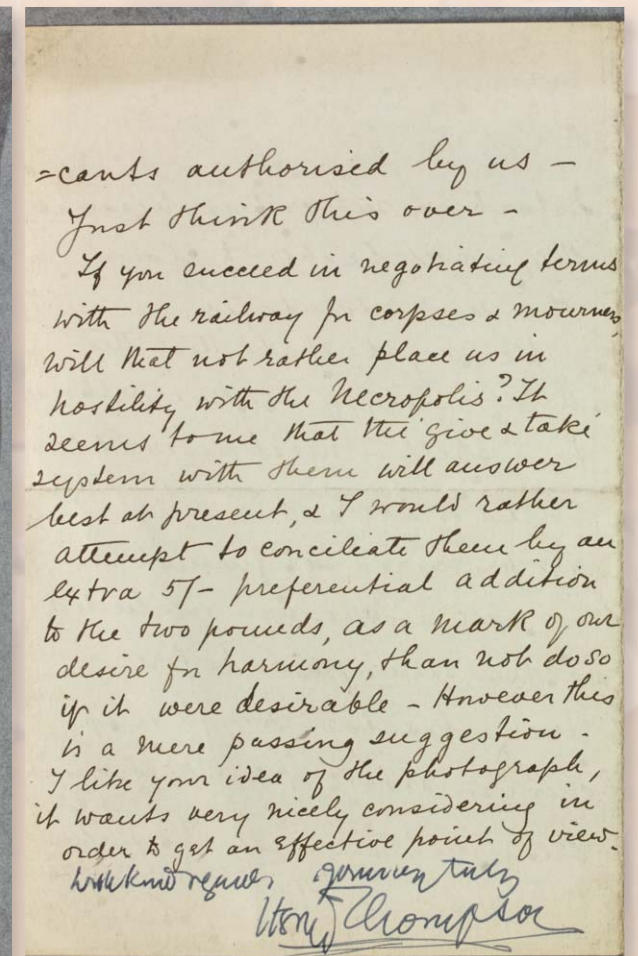 =cants authorised by us –
Just think this over –
If you succeed in negotiating terms
with the railway for corpses & mourners,
will that not rather place us in
hostility with the Necropolis? It
seems to me that the 'give & take'
system with them will answer
best at present, & I would rather
attempt to conciliate them by an
extra 5/- preferential addition
to the two pounds, as a mark of our
desire for harmony, than not do so
if it were desirable – However this
is a mere passing suggestion –
I like your idea of the photograph,
it wants very nicely considering in
order to get an effective point of view.
With kind regards yours very truly
Henry Thompson